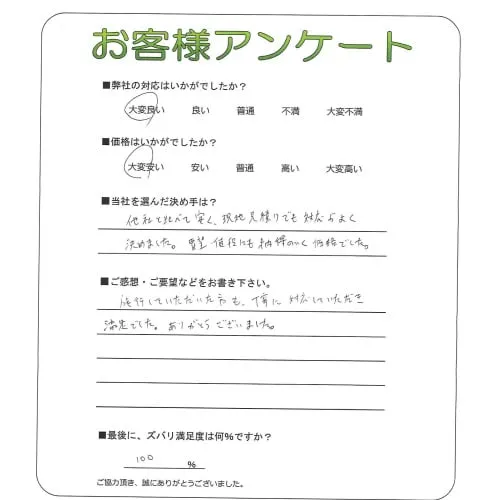 お客様アンケート
■弊社の対応はいかがでしたか？
大変良い 良い 普通 不満 大変不満
■価格はいかがでしたか？
大変安い 安い 普通 高い 大変高い
■当社を選んだ決め手は？
他社と比べて安く、現地見積りでも対応がよく
決めました。買取値段にも納得のいく価格でした。
■ご感想・ご要望などをお書き下さい。
施行していただいた方も、丁寧に対応していただき
満足でした。ありがとうございました。
■最後に、ズバリ満足度は何％ですか？
100 ％
ご協力頂き、誠にありがとうございました。